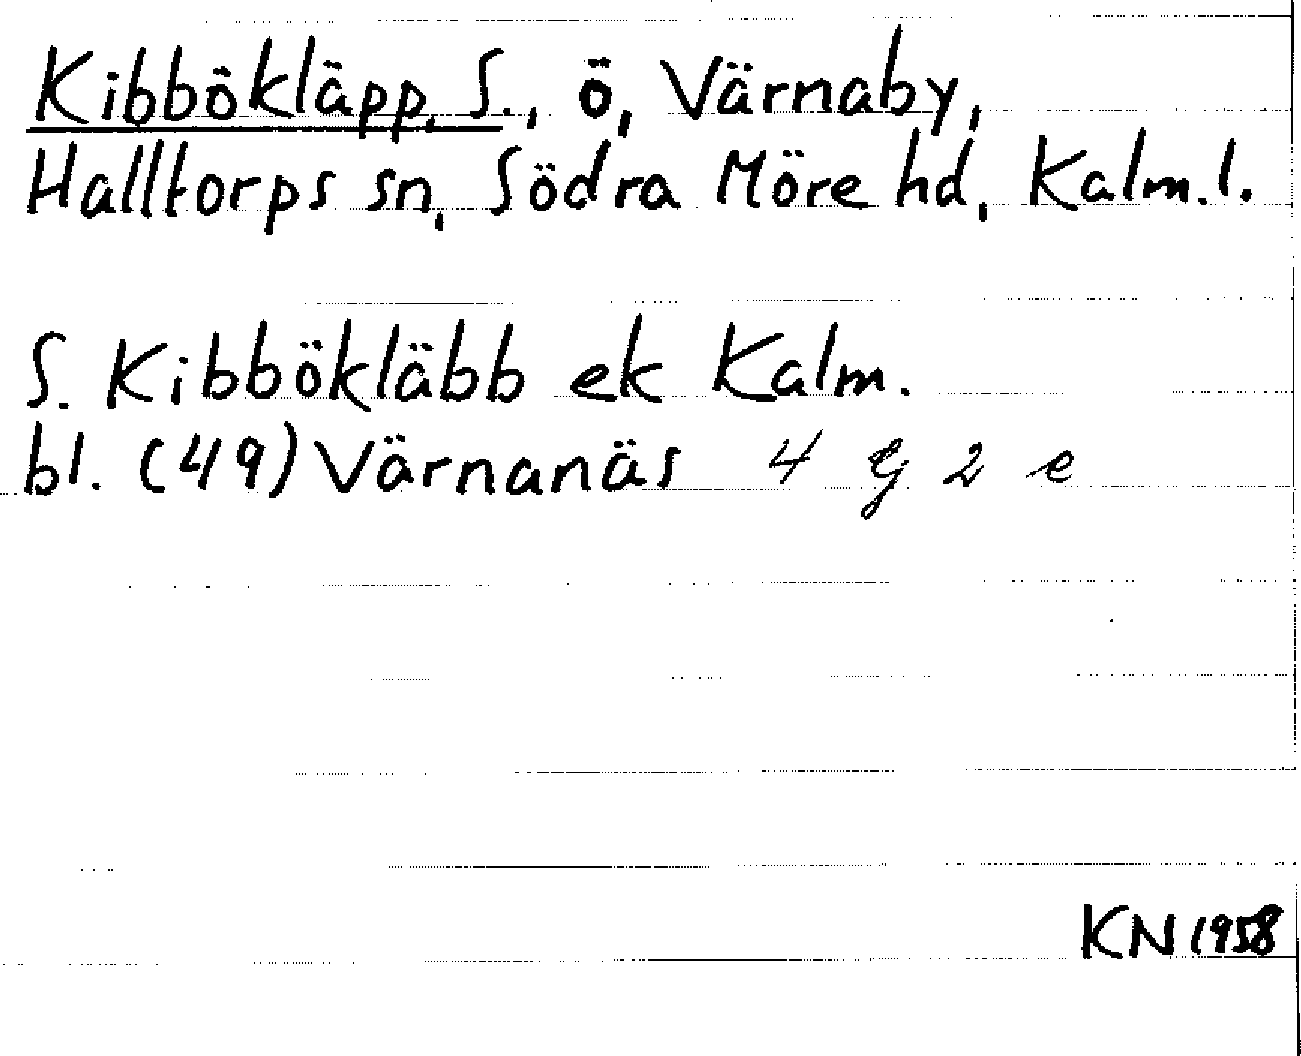 Kibbökläpp, S., ö, Värnaby,
Halltorps sn, Södra Möre hd, Kalm.l.
S. Kibbökläbb ek Kalm.
bl. (49) Värnanäs 4 G 2 e
KN 1958